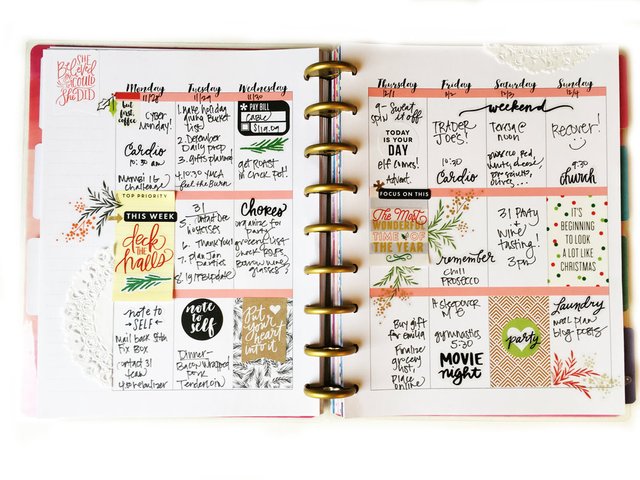 SHE
Believed
SHE COULD
So SHE
DID
Monday
11/28
but
first,
coffee
Cyber
Monday!
Cardio
10:30 am
challenge
TOP PRIORITY
THIS WEEK
deck
THE
halls
note to
→SELF←
Mail back
Fix Box
contact 31
team
Tuesday
11/29
1. Make holiday
giving Bucket
list
2. December
Daily prep
3. gifts planned
4. 10:30 YMCA
feel the Burn
31
5.
hostesses
6. Thank you!
7. Plan Jan
parties
note to
self
Dinner-
Bacon wrapped
Pork
Tenderloin
Wednesday
11/30
PAY BILL
CABLE
get Roast
in crock pot!
Chores
organize for
party
grocery list
check
Borrow wine
glasses?
Put
your
heart
into it
Thursday
12/1
9- Sweat
spin it off
TODAY IS
YOUR
DAY
Elf comes!
Advent
FOCUS ON THIS
The Most
WONDERFUL
TIME OF
THE YEAR
Buy gift
for emilia
Finalize
grocery
list,
place
online
Friday
12/2
TRADER
JOE'S!
10:30
Cardio
remember
chill
PROSECCO
A sleepover
gymnastics
5:30
MOVIE
night
weekend
Saturday
12/3
Teresa @
noon
prosecco, red
white, cheese,
olives...
31 Party
+
wine
tasting!
3pm
party
Sunday
12/4
Recover!
9:30
church
IT'S
BEGINNING
TO LOOK
A LOT LIKE
CHRISTMAS
Laundry
meal plan
blog posts